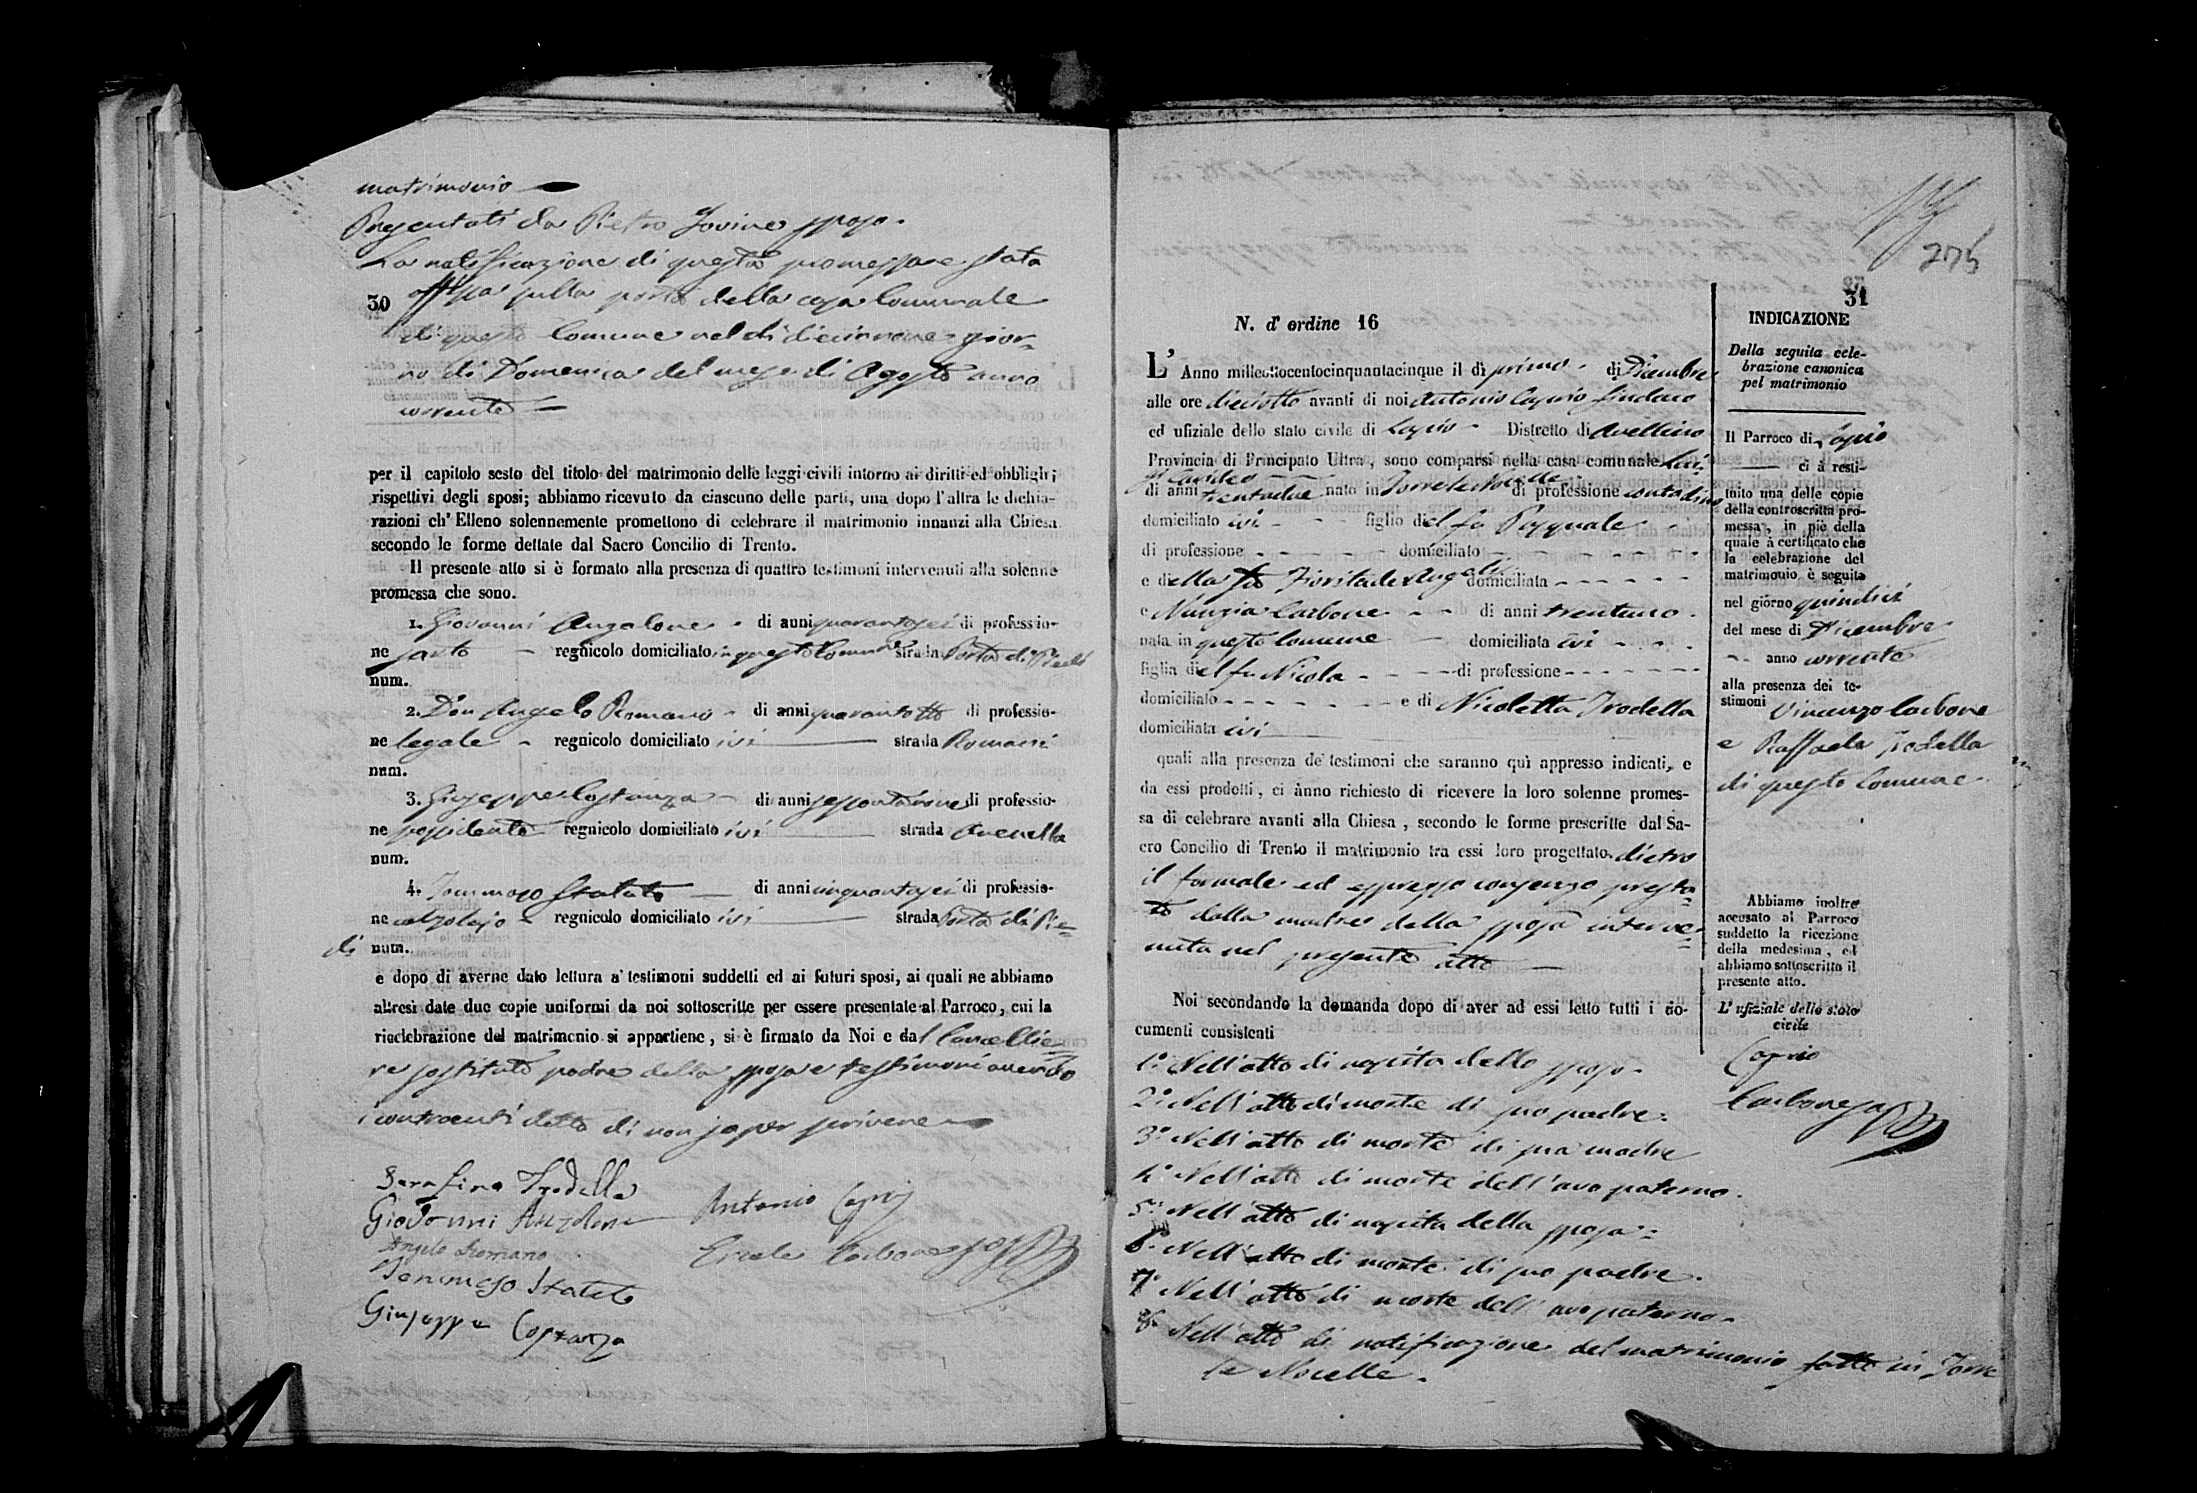 matrimonio
Presentati da Pietro Iovine sposo.
La notificazione di questa promessa è stata
affissa sulla porta della casa Comunale
30
di questo Comune nel di diecinnove gior-
no di Domenica del mese di Agosto anno
corrente
per il capitolo sesto del titolo del matrimonio delle leggi civili intorno ai diritti ed obblighi;
rispettivi degli sposi; abbiamo ricevuto da ciascuno delle parti, una dopo l'altra le dichia-
razioni ch' Elleno solennemente promettono di celebrare il matrimonio innanzi alla Chiesa
secondo le forme dettate dal Sacro Concilio di Trento.
Il presente atto si è formato alla presenza di quattro testimoni intervenuti alla solenne
promessa che sono.
1. Giovanni Anzalone di anni quarantasei di professio-
ne sarto regnicolo domiciliato in questo Comune strada Porta di Piedi
num.
2. Don Angelo Romano di anni quarantotto di professio-
ne legale regnicolo domiciliato ivi strada Romani
num.
3. Giuseppe Costanza di anni sessantanove di professio-
ne possidente regnicolo domiciliato ivi strada
num.
4. Tommaso Statuto di anni cinquantasei di professio-
ne calzolajo regnicolo domiciliato ivi strada Porta di Pie-
di num.
e dopo di averne dato lettura a' testimoni suddetti ed ai futuri sposi, ai quali ne abbiamo
altresì date due copie uniformi da noi sottoscritte per essere presentate al Parroco, cui la
riceelebrazione del matrimonio si appartiene, si è firmato da Noi e dal Cancellie-
re sostituto padre della sposa e testimoni avendo
i contraenti detto di non saper scrivere
Serafino Trodella
Giovanni Anzalone Antonio Caprio
Angelo Romano
Ercole Carbone
Tommaso Statuto
Giuseppe Costanza
275
31
N. d' ordine 16
L' Anno millecottocentocinquantacinque il dì primo di Dicembre
alle ore dieciotto avanti di noi Antonio Caprio Sindaco
ed ufiziale dello stato civile di Lapio Distretto di Avellino
Provincia di Principato Ultra, sono comparsi nella casa comunale Lui-
gi
di anni trentadue nato in Torre le Nocelle di professione contadino
domiciliato ivi figlio del fu Pasquale
di professione domiciliato
e della fu Fiorita de Angelis domiciliata
e Nunzia Carbone di anni trentuno
nata in questo Comune domiciliata ivi
figlia del fu Nicola di professione
domiciliato e di Nicoletta Trodella
domiciliata ivi
quali alla presenza de' testimoni che saranno quì appresso indicati, e
da essi prodotti, ci ànno richiesto di ricevere la loro solenne promes-
sa di celebrare avanti alla Chiesa, secondo le forme prescritte dal Sa-
cro Concilio di Trento il matrimonio tra essi loro progettato dietro
il formale ed espresso consenso presta-
to dalla madre della sposa interve-
nuta nel presente atto
Noi secondando la domanda dopo di aver ad essi letto tutti i do-
cumenti consistenti
1.º Nell'atto di nascita dello sposo.
2.º Nell'atto di morte di suo padre.
3.º Nell'atto di morte di sua madre
4.º Nell'atto di morte dell'avo paterno.
5.º Nell'atto di nascita della sposa.
6.º Nell'atto di morte di suo padre.
7.º Nell'atto di morte dell'avo paterno.
8.º Nell'atto di notificazione del matrimonio fatto in Torre
le Nocelle.
INDICAZIONE
Della seguita cele-
brazione canonica
pel matrimonio
Il Parroco di Lapio
ci à resti-
tuito una delle copie
della controscritta pro-
messa, in piè della
quale à certificato che
la celebrazione del
matrimonio è seguita
nel giorno quindici
del mese di Dicembre
anno corrente
alla presenza dei te-
stimoni Vincenzo Carbone
e Raffaele Trodella
di questo Comune
Abbiamo inoltre
accusato al Parroco
suddetto la ricezione
della medesima, ed
abbiamo sottoscritto il
presente atto.
L' ufiziale dello stato
civile
Caprio
Carbone